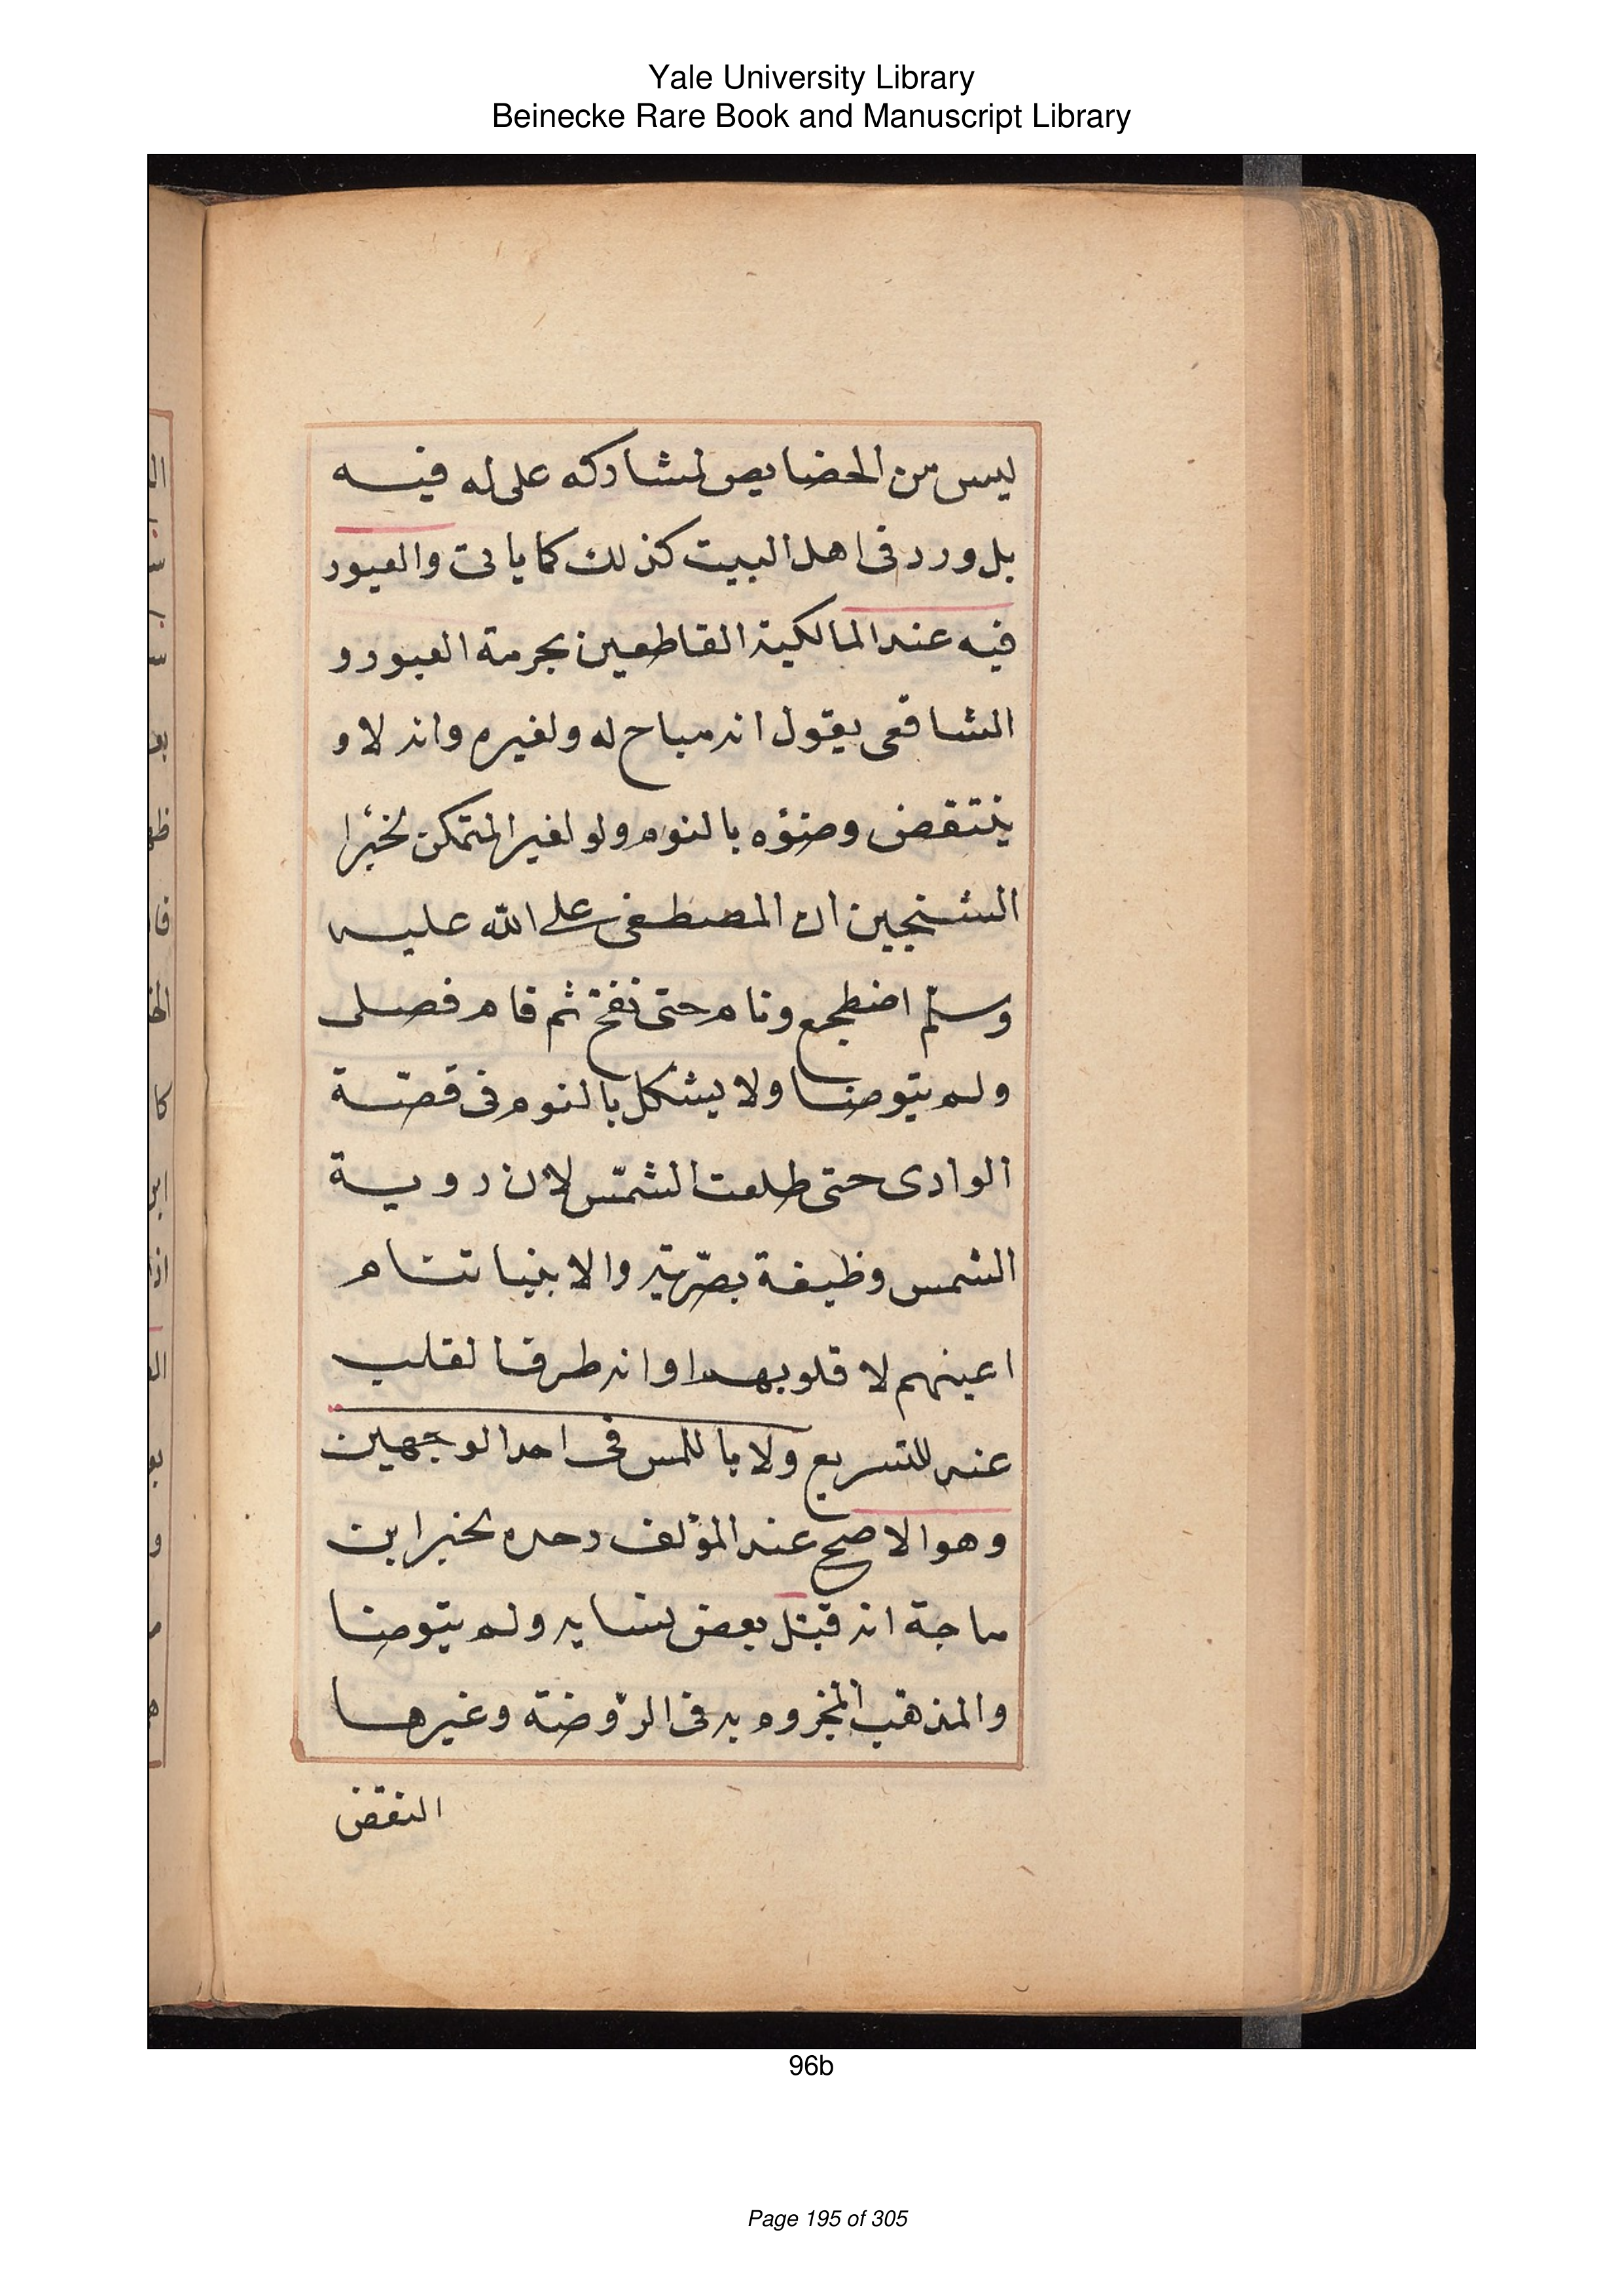 Yale University Library
Beinecke Rare Book and Manuscript Library
ليس من الحضايص لمشاركه على له فيه
بل ورد فى اهل البيت كذلك كما ياتى والعبور
فيه عند المالكية القاطعين بحرمة العبور و
الشافعى يقول انه مباح له ولغيره وانه لا و
ينتقض وضؤه بالنوم ولو لغير المتمكن لخبر ا
الشنجين ان المصطفى على الله عليه
وسلم اضطجع ونام حتى نفخ ثم قام فصلى
ولم يتوضا ولا يشكل بالنوم فى قصّة
الوادى حتى طلعت الشمس لان روية
الشمس وظيفة بصّرية والابنيا تنام
اعينهم لا قلوبهم او انه طرفا لقلب
عنه للتسريع ولا باللمس فى احد الوجهين
وهو الاصح عند المؤلف وحده لخبر ابن
ماجة انه قبّل بعض نسايه ولم يتوضا
والمذهب المجزوم به فى الرّوضة وغيرها
النقض
96b
Page 195 of 305